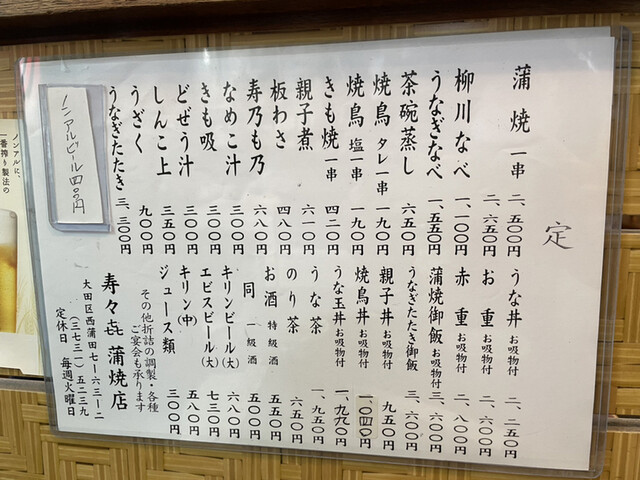 定
蒲焼 一串 二、五〇〇円
二、六五〇円
柳川なべ 一、一〇〇円
うなぎなべ 一、五五〇円
茶碗蒸し 六五〇円
焼鳥 タレ一串 一九〇円
焼鳥 塩一串 一九〇円
きも焼 一串 四二〇円
親子煮 六一〇円
板わさ 四八〇円
寿乃も乃 六八〇円
なめこ汁 三〇〇円
きも吸 三〇〇円
どぜう汁 三五〇円
しんこ上 三五〇円
うざく 九〇〇円
うなぎたたき 三、三〇〇円
ノンアルビール 四〇〇円
うな丼 お吸物付 二、二五〇円
お重 お吸物付 二、六〇〇円
赤重 お吸物付 二、八〇〇円
蒲焼御飯 お吸物付 三、六〇〇円
うなぎたたき御飯 三、六〇〇円
親子丼 お吸物付 九五〇円
焼鳥丼 お吸物付 一、〇四〇円
うな玉丼 お吸物付 一、九九〇円
うな茶 一、九五〇円
のり茶 六五〇円
お酒 特級酒 五五〇円
同 一級酒 五〇〇円
キリンビール(大) 六八〇円
エビスビール(大) 七三〇円
キリン(中) 五八〇円
ジュース類 三〇〇円
その他折詰の調製・各種
ご宴会も承ります
寿々㐂 蒲焼店
大田区西蒲田七ー六三ー二
(三七三一)五二三九
定休日 毎週火曜日
ノンアルに、
一番搾り製法の